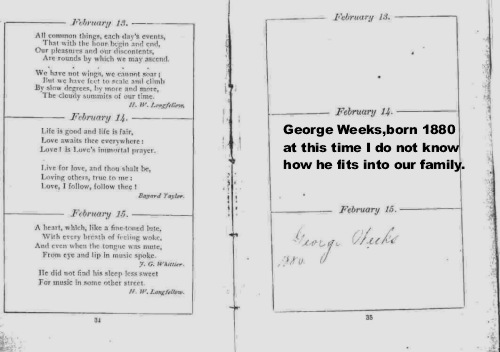 February 13.
All common things, each day's events,
That with the hour begin and end,
Our pleasures and our discontents,
Are rounds by which we may ascend.
We have not wings, we cannot soar;
But we have feet to scale and climb
By slow degrees, by more and more,
The cloudy summits of our time.
H. W. Longfellow.
February 14.
Life is good and life is fair,
Love awaits thee everywhere:
Love! is Love's immortal prayer.
Live for love, and thou shalt be,
Loving others, true to me:
Love, I follow, follow thee!
Bayard Taylor.
February 15.
A heart, which, like a fine-toned lute,
With every breath of feeling woke,
And even when the tongue was mute,
From eye and lip in music spoke.
J. G. Whittier.
He did not find his sleep less sweet
For music in some other street.
H. W. Longfellow.
34
February 13.
February 14.
George Weeks,born 1880
at this time I do not know
how he fits into our family.
February 15.
George Weeks
1880
35